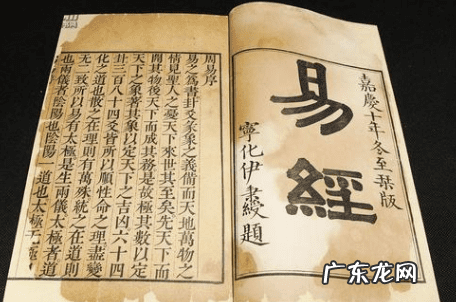 嘉慶十年冬至栞版
易經
寧化伊秉綬題
周易序
易之為書卦爻彖象之義備而天地萬物之
情見聖人之憂天下來世其至矣先天下而
開其物後天下而成其務是故極其數以定
天下之象著其象以定天下之吉凶六十四
卦三百八十四爻皆所以順性命之理盡變
化之道也散之在理則有萬殊統之在道則
无二致所以易有太極是生兩儀太極者道
也兩儀者陰陽也陰陽一道也太極无極也
广东龙网